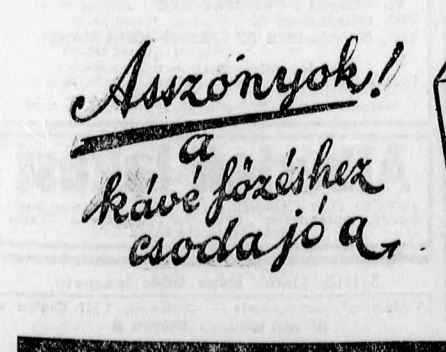 Asszonyok!
a
kávé főzéshez
csoda jó a